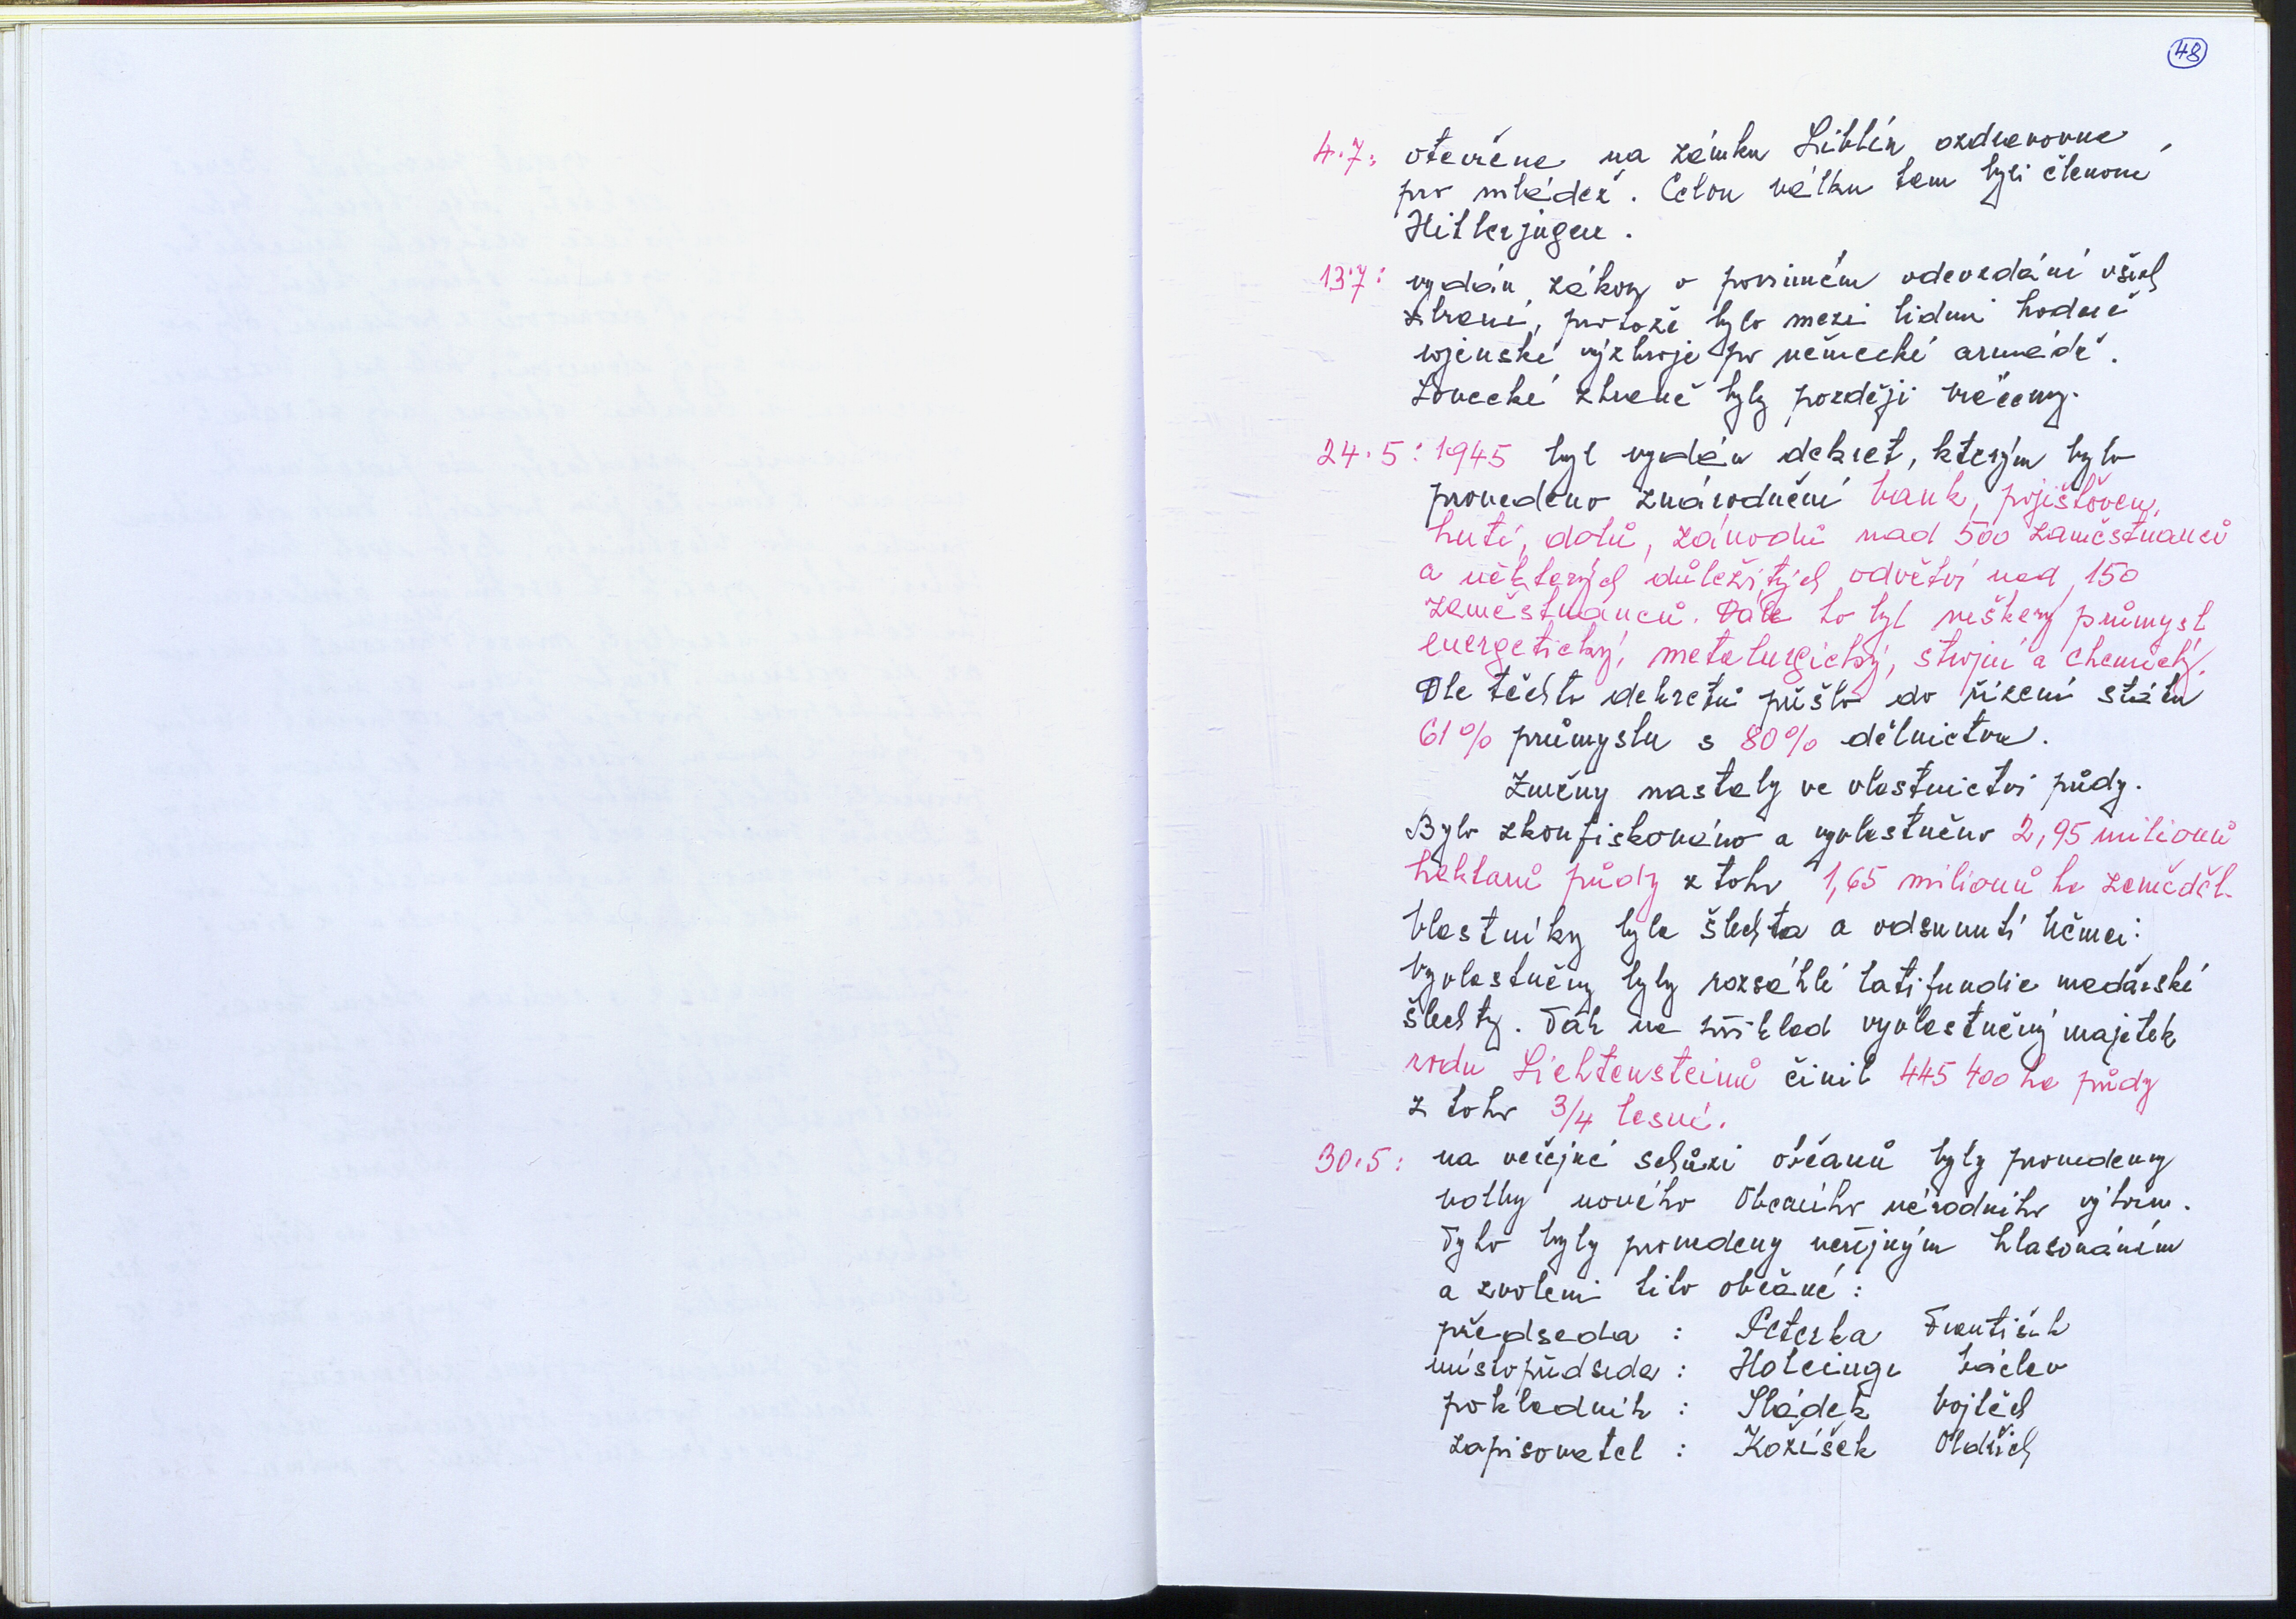 48
4.7: otevřena na zámku Liblín ozdravovna
pro mládež. Celou válku tam byli členové
Hitlerjugen.
13.7: vydán zákon o povinném odevzdání všech
zbraní, protože bylo mezi lidmi hodně
vojenské výzbroje po německé armádě.
Lovecké zbraně byly později vráceny.
24.5: 1945 byl vydán dekret, kterým bylo
provedeno znárodnění bank, pojišťoven,
hutí, dolů, závodů nad 500 zaměstnanců
a některých důležitých odvětví nad 150
zaměstnanců. Dále to byl veškerý průmysl
energetický, metalurgický, strojní a chemický.
Dle těchto dekretů přišlo do řízení státu
61% průmyslu s 80% dělnictva.
Změny nastaly ve vlastnictví půdy.
Bylo zkonfiskováno a vyvlastněno 2,95 milionů
hektarů půdy z toho 1,65 milionů ha zeměděl.
Vlastníky byla šlechta a odsunutí Němci:
Vyvlastněny byly rozsáhlé latifundie maďarské
šlechty. Tak na příklad vyvlastněný majetek
rodu Lichtensteinů činil 445 400 ha půdy
z toho 3/4 lesní.
30.5: na veřejné schůzi občanů byly provedeny
volby nového Obecního národního výboru.
Tyto byly provedeny veřejným hlasováním
a zvoleni tito občané:
předseda : Peterka František
místopředseda : Václav
pokladník : Sládek Vojtěch
zapisovatel : Kožíšek Oldřich